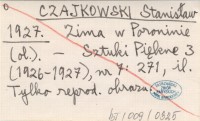 CZAJKOWSKI Stanisław
1927. Zima w Poroninie
(ol.). — Sztuki Piękne 3
(1926-1927), nr 7: 271, il.
Tylko reprod. obrazu.